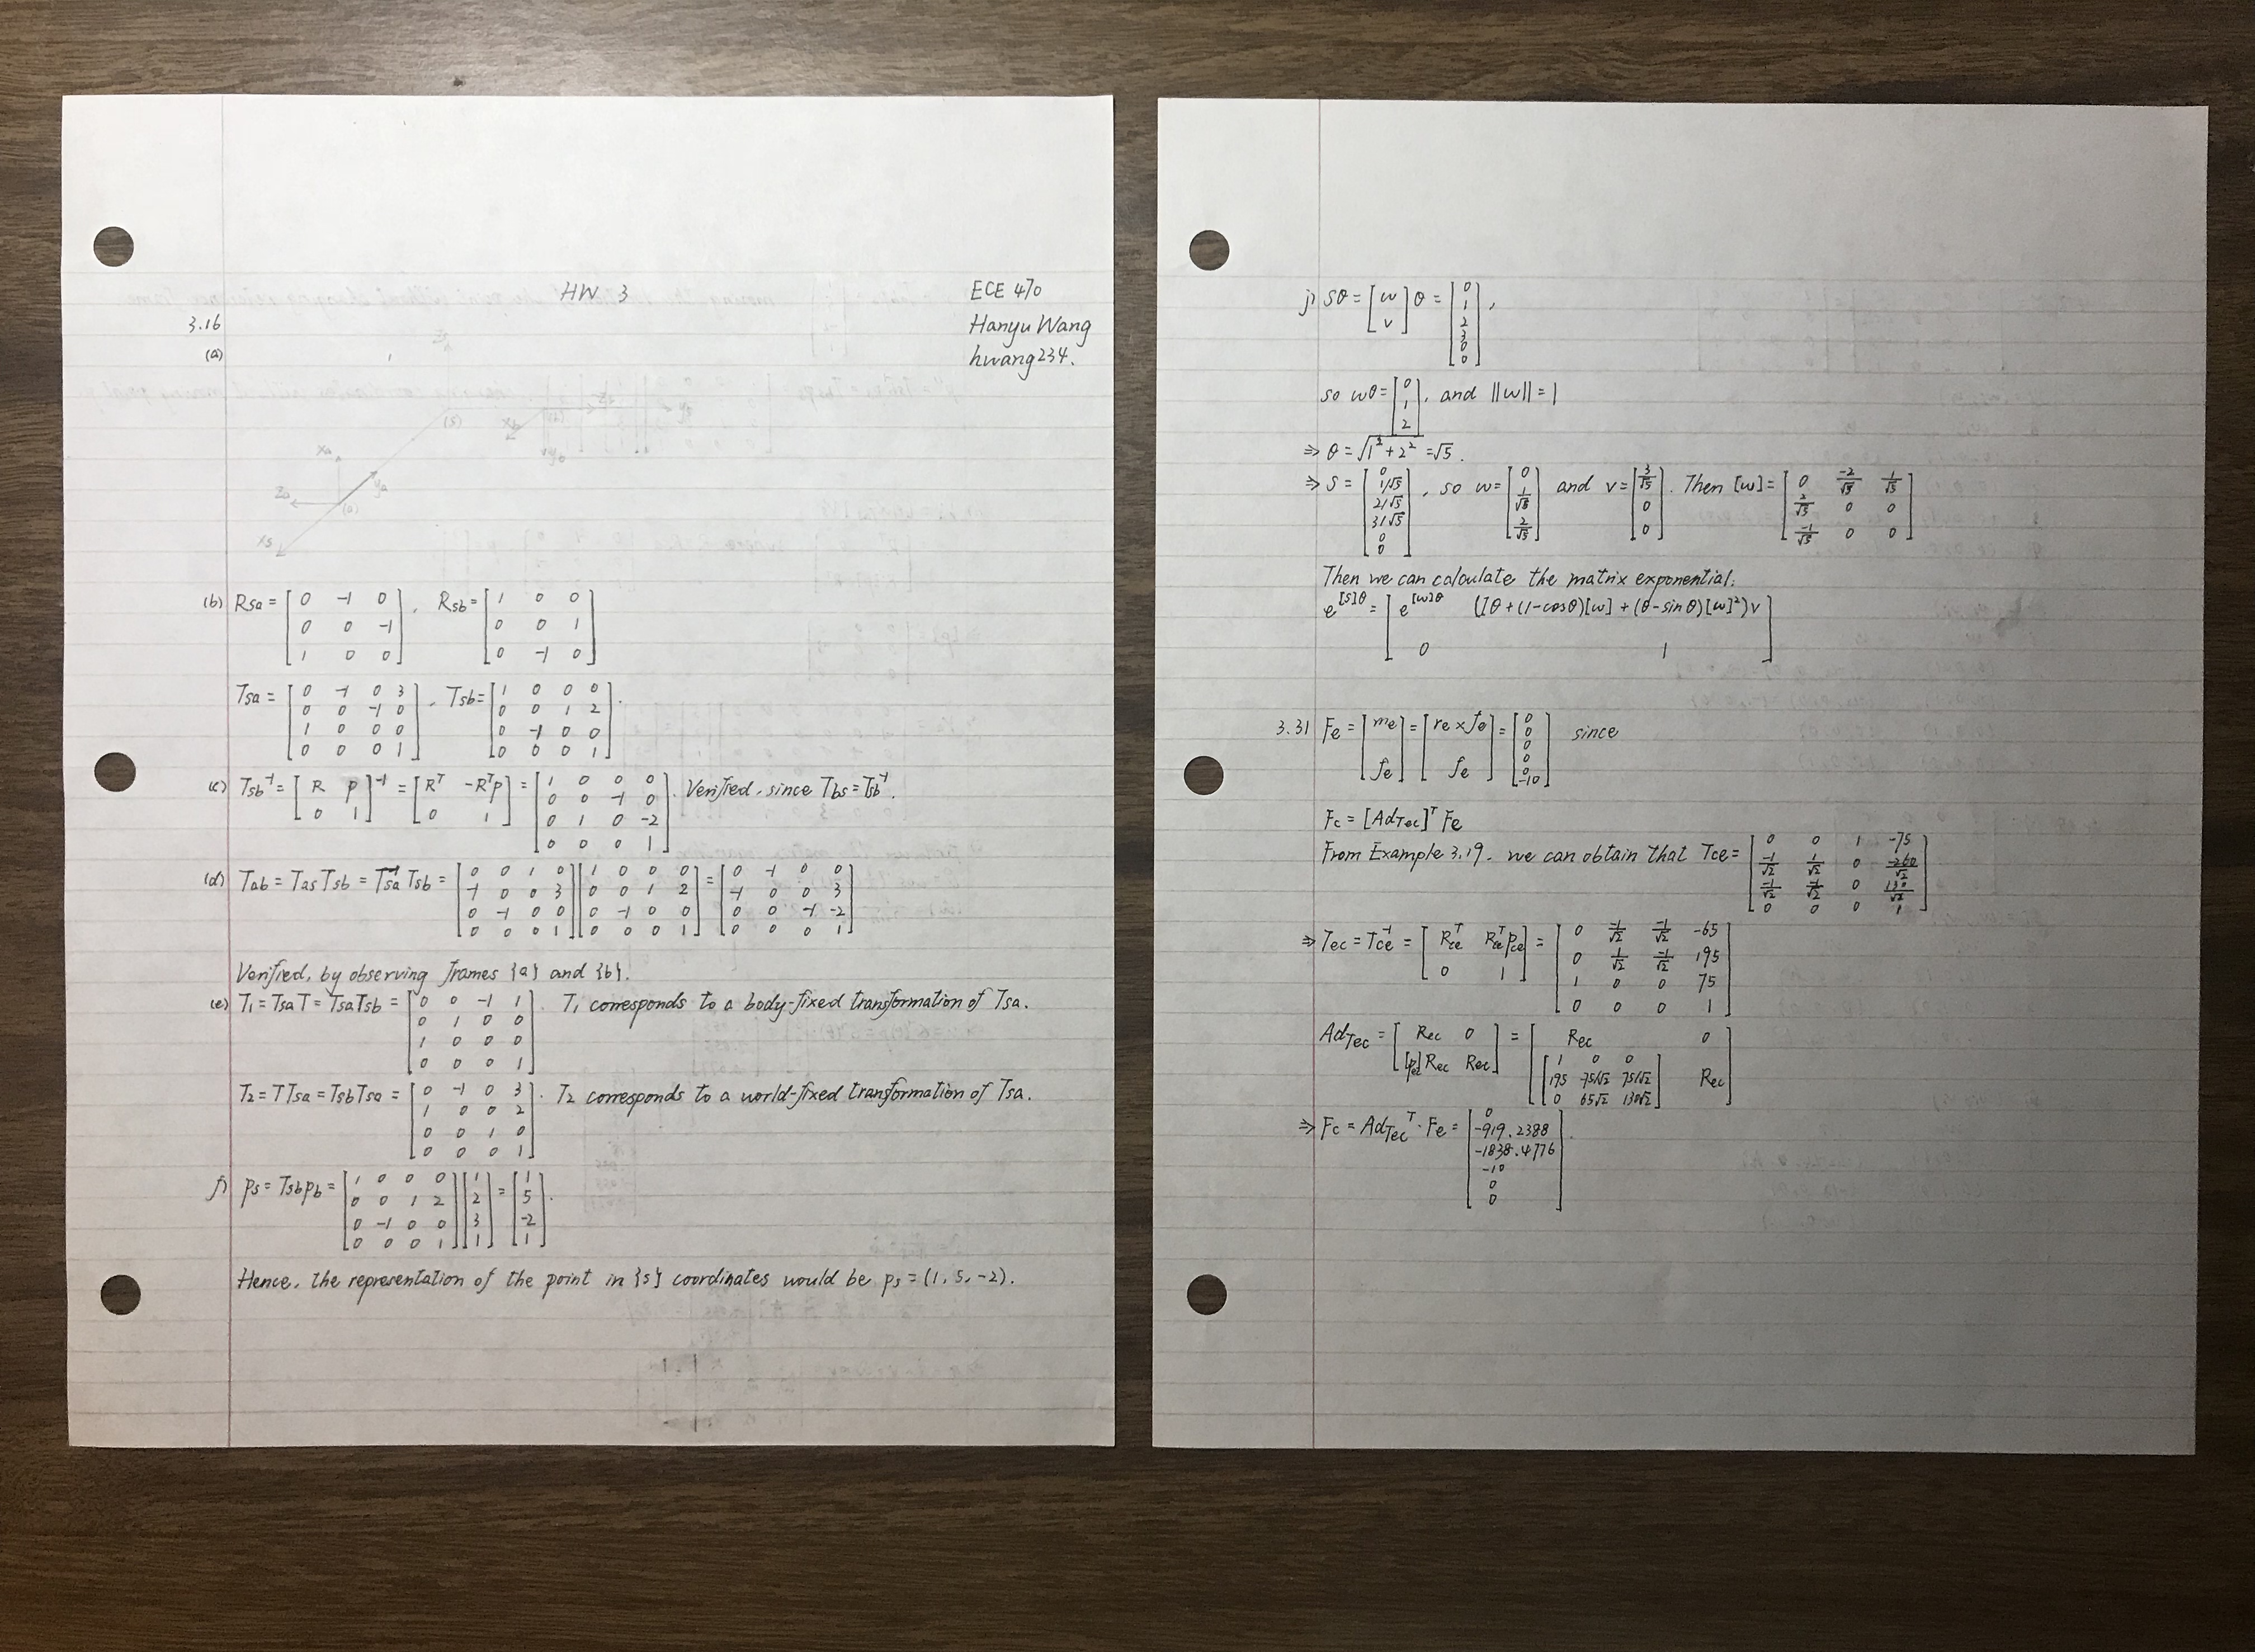 HW 3
ECE 470
Hanyu Wang
hwang234.
3.16
(a)
(s)
xb
yb
xa
za
ya
(a)
xs
(b) Rsa = [0 -1 0; 0 0 -1; 1 0 0], Rsb = [1 0 0; 0 0 1; 0 -1 0]
Tsa = [0 -1 0 3; 0 0 -1 0; 1 0 0 0; 0 0 0 1], Tsb = [1 0 0 0; 0 0 1 2; 0 -1 0 0; 0 0 0 1].
(c) Tsb⁻¹ = [R p; 0 1]⁻¹ = [Rᵀ -Rᵀp; 0 1] = [1 0 0 0; 0 0 -1 0; 0 1 0 -2; 0 0 0 1]. Verified, since Tbs = Tsb⁻¹.
(d) Tab = Tas Tsb = Tsa⁻¹ Tsb = [0 0 1 0; -1 0 0 3; 0 -1 0 0; 0 0 0 1][1 0 0 0; 0 0 1 2; 0 -1 0 0; 0 0 0 1] = [0 -1 0 0; -1 0 0 3; 0 0 -1 -2; 0 0 0 1]
Verified, by observing frames {a} and {b}.
(e) T1 = TsaT = TsaTsb = [0 0 -1 1; 0 1 0 0; 1 0 0 0; 0 0 0 1]. T1 corresponds to a body-fixed transformation of Tsa.
T2 = TTsa = TsbTsa = [0 -1 0 3; 1 0 0 2; 0 0 1 0; 0 0 0 1]. T2 corresponds to a world-fixed transformation of Tsa.
f) ps = Tsbpb = [1 0 0 0; 0 0 1 2; 0 -1 0 0; 0 0 0 1][1; 2; 3; 1] = [1; 5; -2; 1].
Hence, the representation of the point in {s} coordinates would be ps = (1, 5, -2).
j) Sθ = [w; v]θ = [0; 1; 2; 3; 0; 0],
so wθ = [0; 1; 2], and ||w|| = 1
⇒ θ = √(1² + 2²) = √5.
⇒ S = [0; 1/√5; 2/√5; 3/√5; 0; 0], so w = [0; 1/√5; 2/√5] and v = [3/√5; 0; 0]. Then [w] = [0 -2/√5 1/√5; 2/√5 0 0; -1/√5 0 0]
Then we can calculate the matrix exponential.
e^[S]θ = [e^[w]θ (Iθ + (1-cosθ)[w] + (θ-sinθ)[w]²)v; 0 1]
3.31 Fe = [me; fe] = [re × fe; fe] = [0; 0; 0; 0; 0; -10] since
Fc = [AdTec]ᵀ Fe
From Example 3.19, we can obtain that Tce = [0 0 1 -75; -1/√2 1/√2 0 -260/√2; -1/√2 -1/√2 0 130/√2; 0 0 0 1]
⇒ Tec = Tce⁻¹ = [Rceᵀ Rceᵀpce; 0 1] = [0 -1/√2 -1/√2 -65; 0 1/√2 -1/√2 195; 1 0 0 75; 0 0 0 1]
AdTec = [Rec 0; [pec]Rec Rec] = [Rec 0; [1 0 0; 195 -75/√2 75/√2; 0 65√2 130√2] Rec]
⇒ Fc = AdTecᵀ · Fe = [0; -919.2388; -1838.4776; -10; 0; 0].